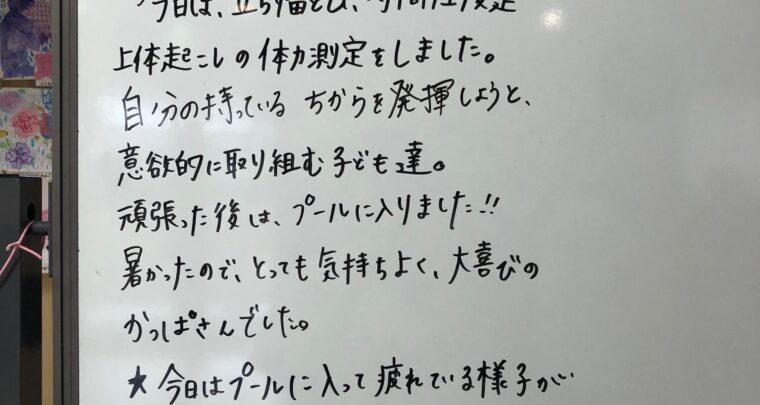 今日は、立ち幅とび、
上体起こしの体力測定をしました。
自分の持っている ちからを発揮しようと、
意欲的に取り組む子ども達。
頑張った後は、プールに入りました!!
暑かったので、とっても気持ちよく、大喜びの
かっぱさんでした。
★今日はプールに入って疲れている様子がい